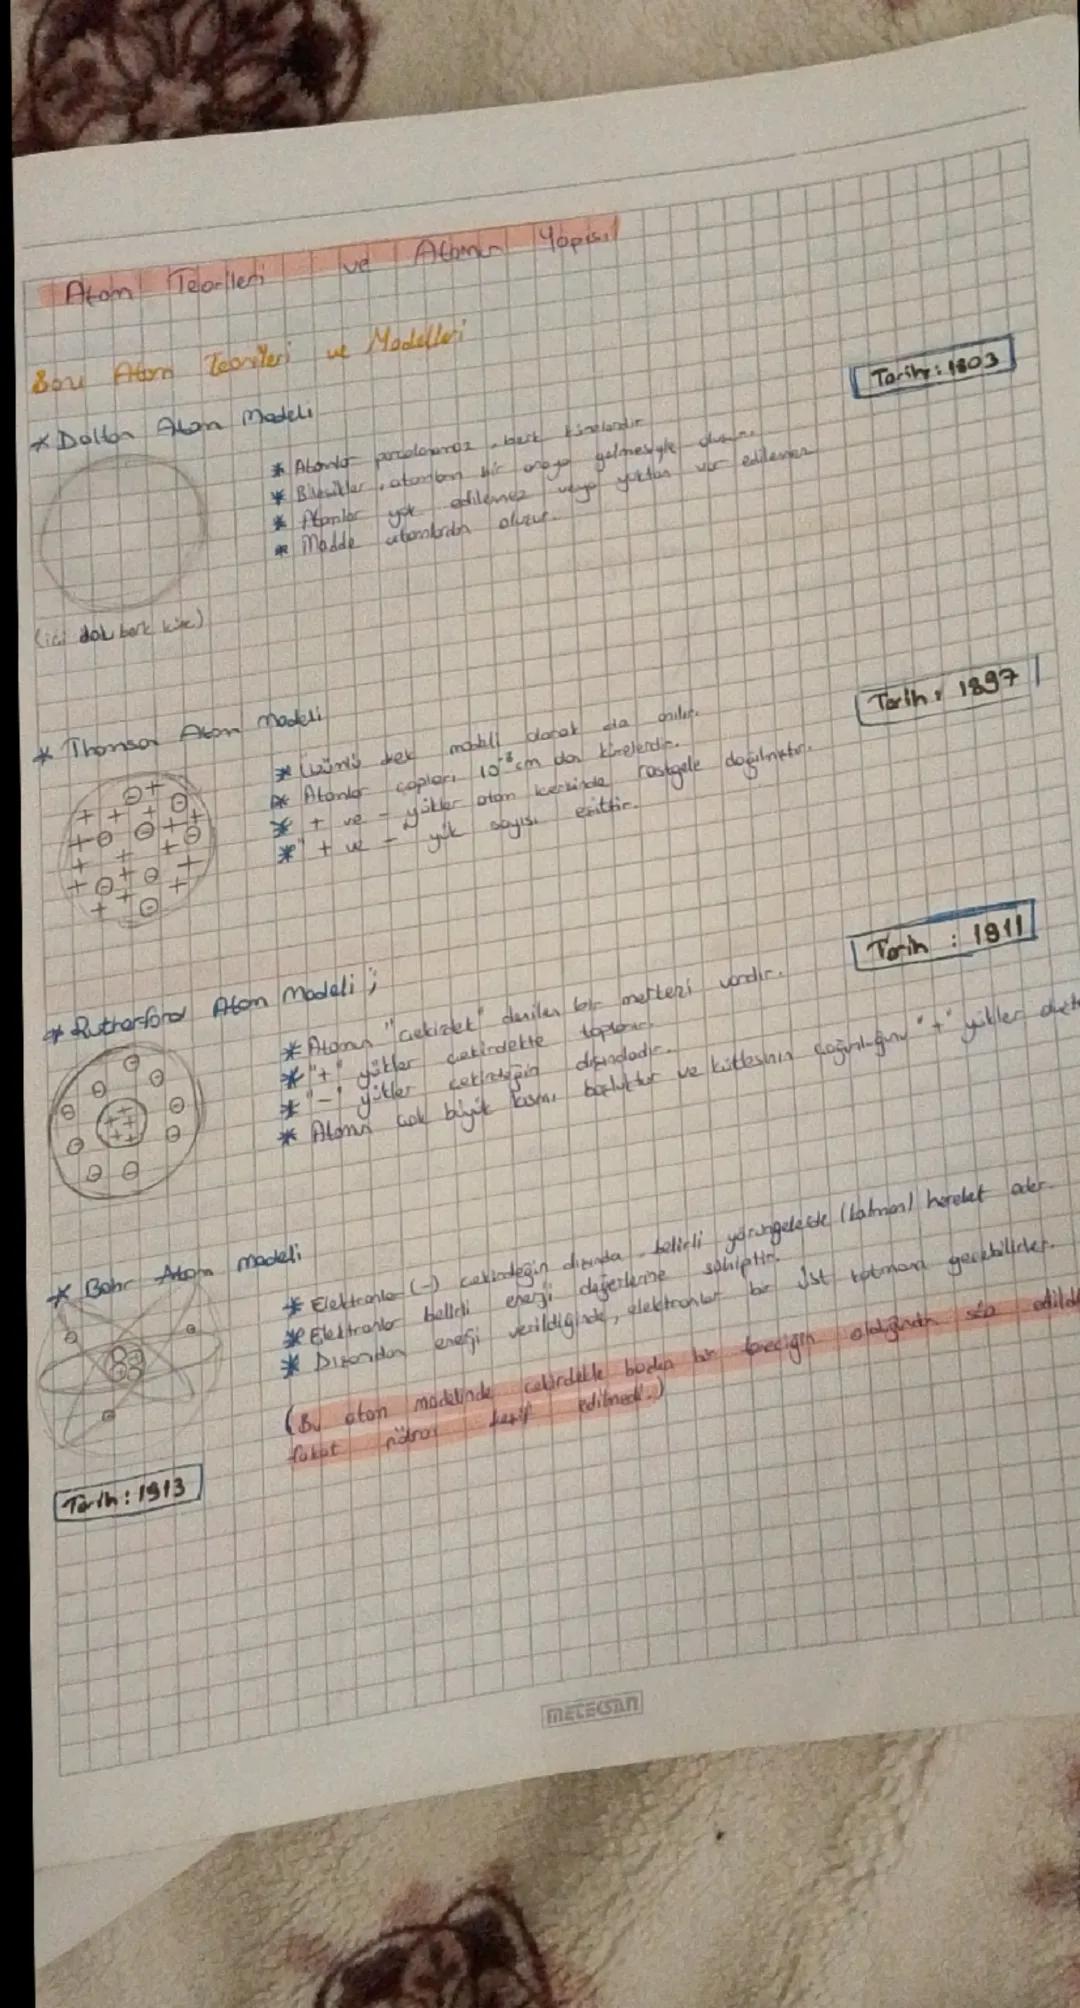 Atom Teorileri ve Atomun Yapısı
Bazı Atom Teorileri ve Modelleri
* Dalton Atom Modeli
Tarih: 1803
* Atomlar parçalanamaz, berk kürelerdir
* Bileşikler, atomların bir araya gelmesiyle oluşur.
* Atomlar yok edilemez veya yoktan var edilemez
* Madde atomlardan oluşur.
(içi dolu berk küre)
* Thomson Atom Modeli
Tarih: 1897
* Üzümlü kek modeli olarak da anılır.
* Atomlar çapları 10⁻⁸ cm olan kürelerdir.
* + ve - yükler atom içerisinde rastgele dağılmıştır.
* + ve - yük sayısı eşittir.
* Rutherford Atom Modeli;
Tarih: 1911
* Atomun "çekirdek" denilen bir merkezi vardır.
* "+" yükler çekirdekte toplanır.
* "-" yükler çekirdeğin dışındadır.
* Atomun çok büyük kısmı boşluktur ve kütlesinin çoğunluğunu "+" yükler
* Bohr Atom Modeli
* Elektronlar (-) çekirdeğin dışında belirli yörüngelerde (katman) hareket eder.
* Elektronlar belirli enerji değerlerine sahiptir.
* Dışarıdan enerji verildiğinde, elektronlar bir üst katmana geçebilirler.
(Bu atom modelinde çekirdekte başka bir taneciğin olduğundan söz
fakat nötron keşif edilmedi.)
Tarih: 1913
METEKSAN